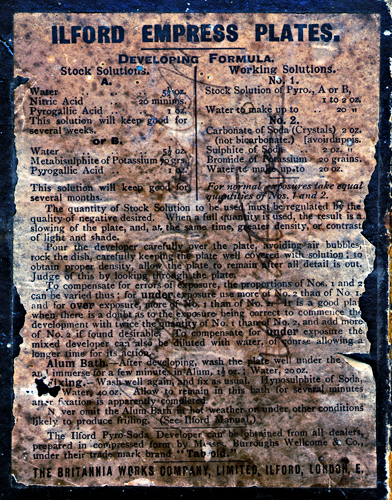 ILFORD EMPRESS PLATES.
DEVELOPING FORMULA.
Stock Solutions.
A.
Water 5½ oz.
Nitric Acid 20 minims.
Pyrogallic Acid 1 oz.
This solution will keep good for
several weeks.
or B.
Water 5½ oz.
Metabisulphite of Potassium 70 grs.
Pyrogallic Acid 1 oz.
This solution will keep good for
several months.
Working Solutions.
No. 1.
Stock Solution of Pyro., A or B,
1 to 2 oz.
Water to make up to 20 "
No. 2.
Carbonate of Soda (Crystals) 2 oz.
(not bicarbonate.) [avoirdupois.
Sulphite of Soda 2 oz. "
Bromide of Potassium 20 grains.
Water to make up to 20 oz.
For normal exposures take equal
quantities of Nos. 1 and 2.
The quantity of Stock Solution to be used must be regulated by the
quality of negative desired. When a full quantity is used, the result is a
slowing of the plate, and, at the same time, greater density, or contrast
of light and shade.
Pour the developer carefully over the plate, avoiding air bubbles,
rock the dish, carefully keeping the plate well covered with solution; to
obtain proper density, allow the plate to remain after all detail is out.
Judge of this by looking through the plate.
To compensate for errors of exposure, the proportions of Nos. 1 and 2
can be varied thus: for under exposure use more of No. 2 than of No. 1
and for over exposure, more of No. 1 than of No. 2. It is a good plan
when there is a doubt as to the exposure being correct to commence the
development with twice the quantity of No. 1 than of No. 2, and add more
of No. 2 if found desirable. To compensate for under exposure the
mixed developer can also be diluted with water, of course allowing a
longer time for its action.
Alum Bath.—After developing, wash the plate well under the
and immerse for a few minutes in Alum, oz. Water, 20 oz.
Fixing.—Wash well again, and fix as usual. Hyposulphite of Soda,
Water, 20 oz. Allow to remain in this bath for several minutes
after fixation is apparently completed.
Never omit the Alum Bath in hot weather or under other conditions
likely to produce frilling. (See Ilford Manual.)
The Ilford Pyro-Soda Developer can be obtained from all dealers,
prepared in compressed form by Messrs. Burroughs Wellcome & Co.,
under their trade mark brand "Tabloid."
THE BRITANNIA WORKS COMPANY, LIMITED, ILFORD, LONDON, E.